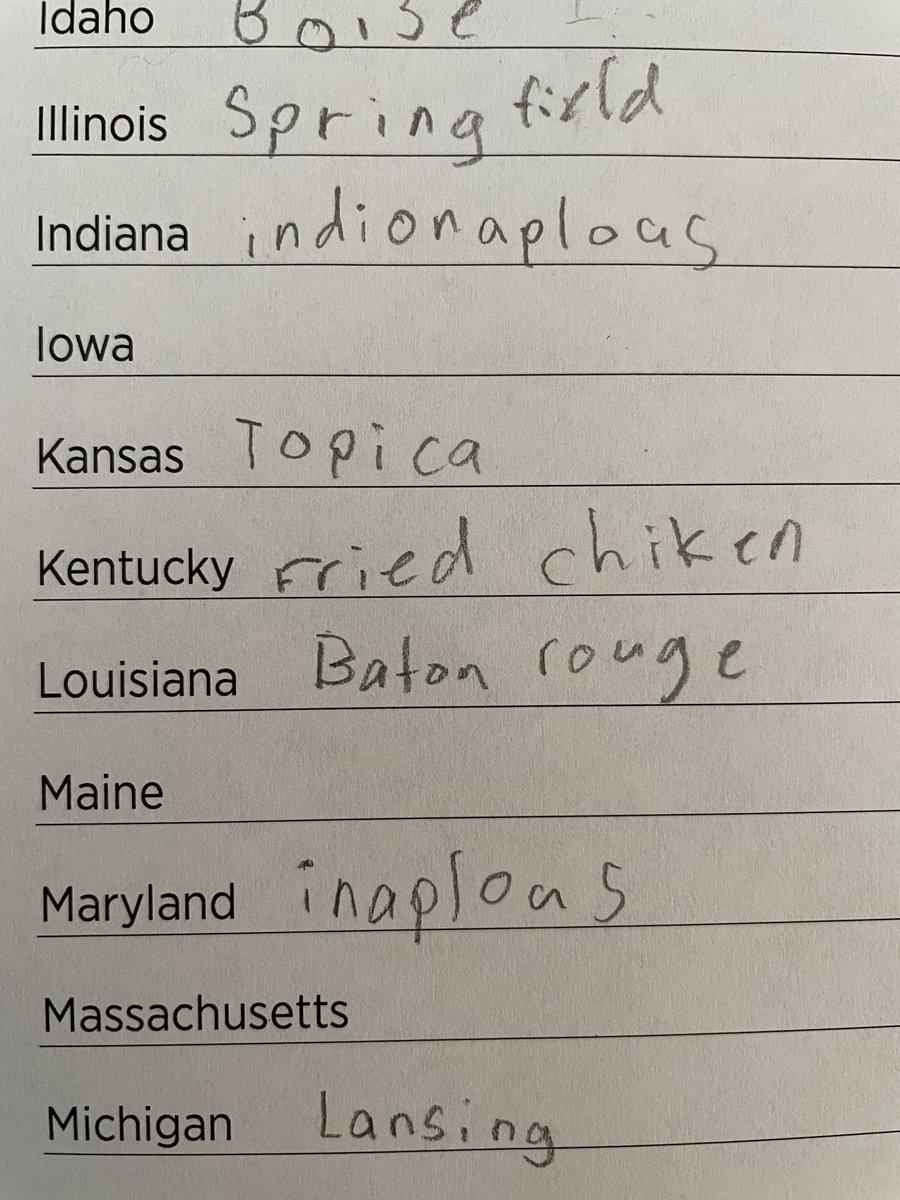 Idaho Boise
Illinois Springfield
Indiana indionaploas
Iowa
Kansas Topica
Kentucky Fried chiken
Louisiana Baton rouge
Maine
Maryland inaploas
Massachusetts
Michigan Lansing